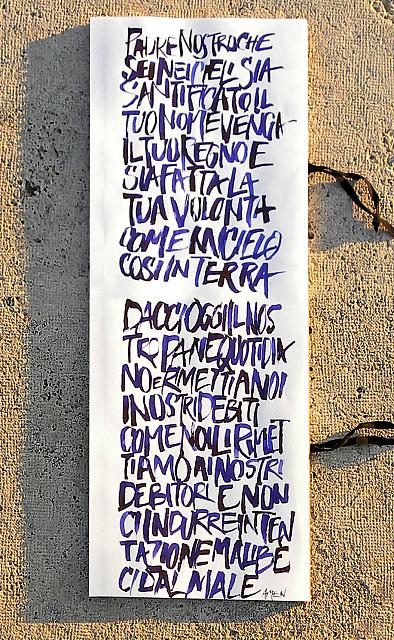 PADRE NOSTRO CHE
SEI NEI CIELI SIA
SANTIFICATO IL
TUO NOME VENGA
IL TUO REGNO E
SIA FATTA LA
TUA VOLONTA
COME IN CIELO
COSI IN TERRA
DACCI OGGI IL NOS
TRO PANE QUOTIDIA
NO E RIMETTI A NOI
I NOSTRI DEBITI
COME NOI LI RIMET
TIAMO AI NOSTRI
DEBITORI E NON
CI INDURRE IN TEN
TAZIONE MA LIBE
CI DAL MALE AMEN